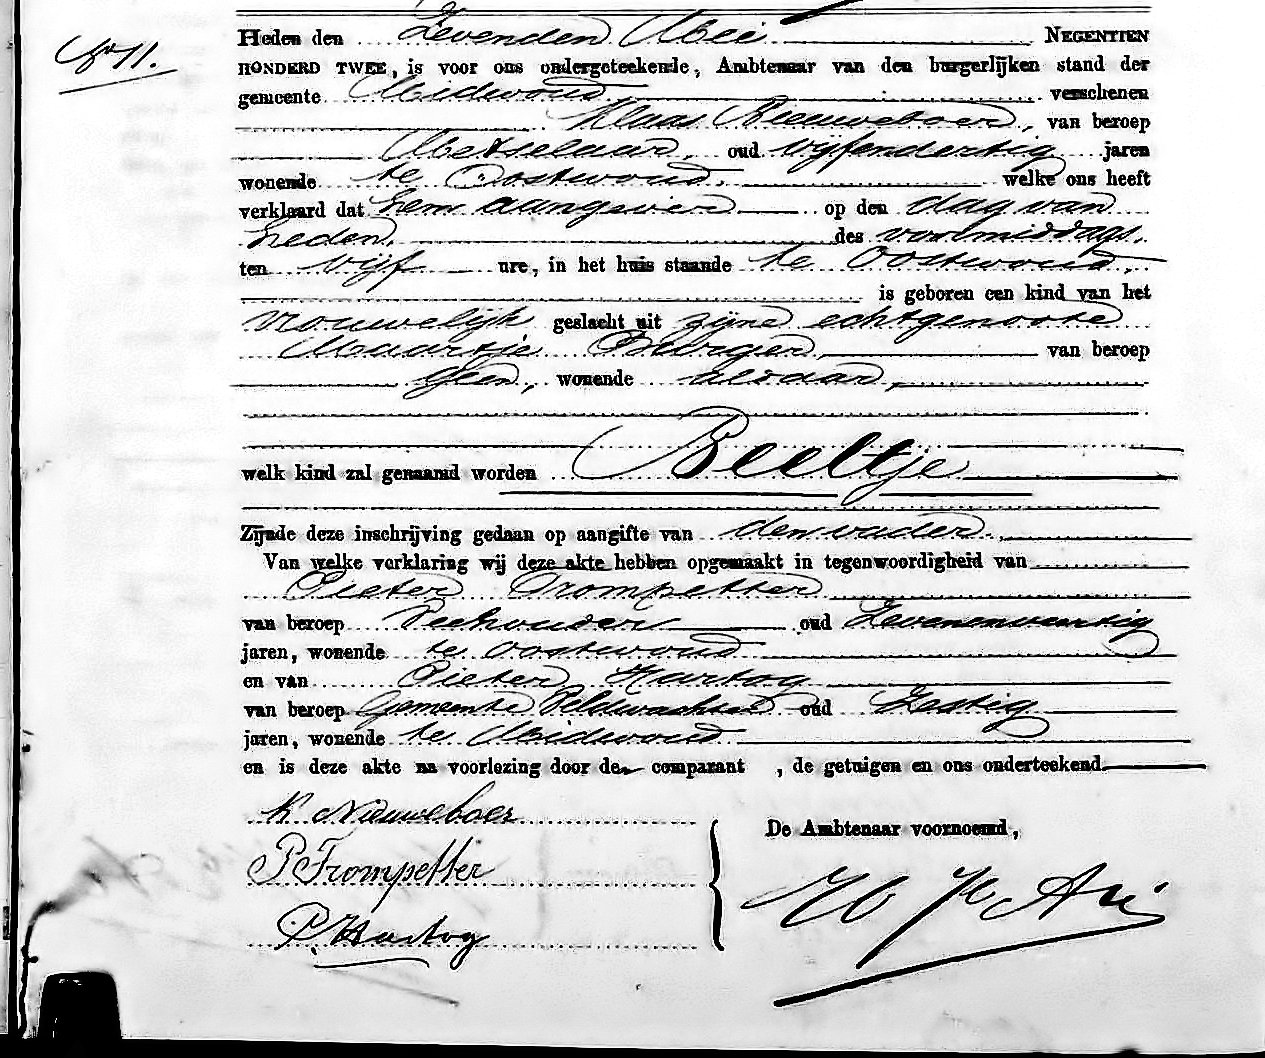 No 11.
Heden den Zevenden Mei NEGENTIEN
HONDERD TWEE, is voor ons ondergeteekende, Ambtenaar van den burgerlijken stand der
gemeente Midwoud verschenen
Klaas Nieuweboer, van beroep
Metselaar, oud vijfendertig jaren
wonende te Oostwoud, welke ons heeft
verklaard dat hem aangever op den dag van
heden, des voormiddags,
ten vijf ure, in het huis staande te Oostwoud,
is geboren een kind van het
vrouwelijk geslacht uit zijne echtgenoote
Maartje Burger, van beroep
geen, wonende aldaar,
welk kind zal genaamd worden Beeltje
Zijnde deze inschrijving gedaan op aangifte van den vader.
Van welke verklaring wij deze akte hebben opgemaakt in tegenwoordigheid van
Pieter Trompetter
van beroep Veehouder oud Zevenenveertig
jaren, wonende te Oostwoud
en van Pieter Hartog
van beroep Gemeente Veldwachter oud Zestig
jaren, wonende te Midwoud
en is deze akte na voorlezing door den comparant , de getuigen en ons onderteekend.
K Nieuweboer
De Ambtenaar voornoemd,
P Trompetter
P. Hartog